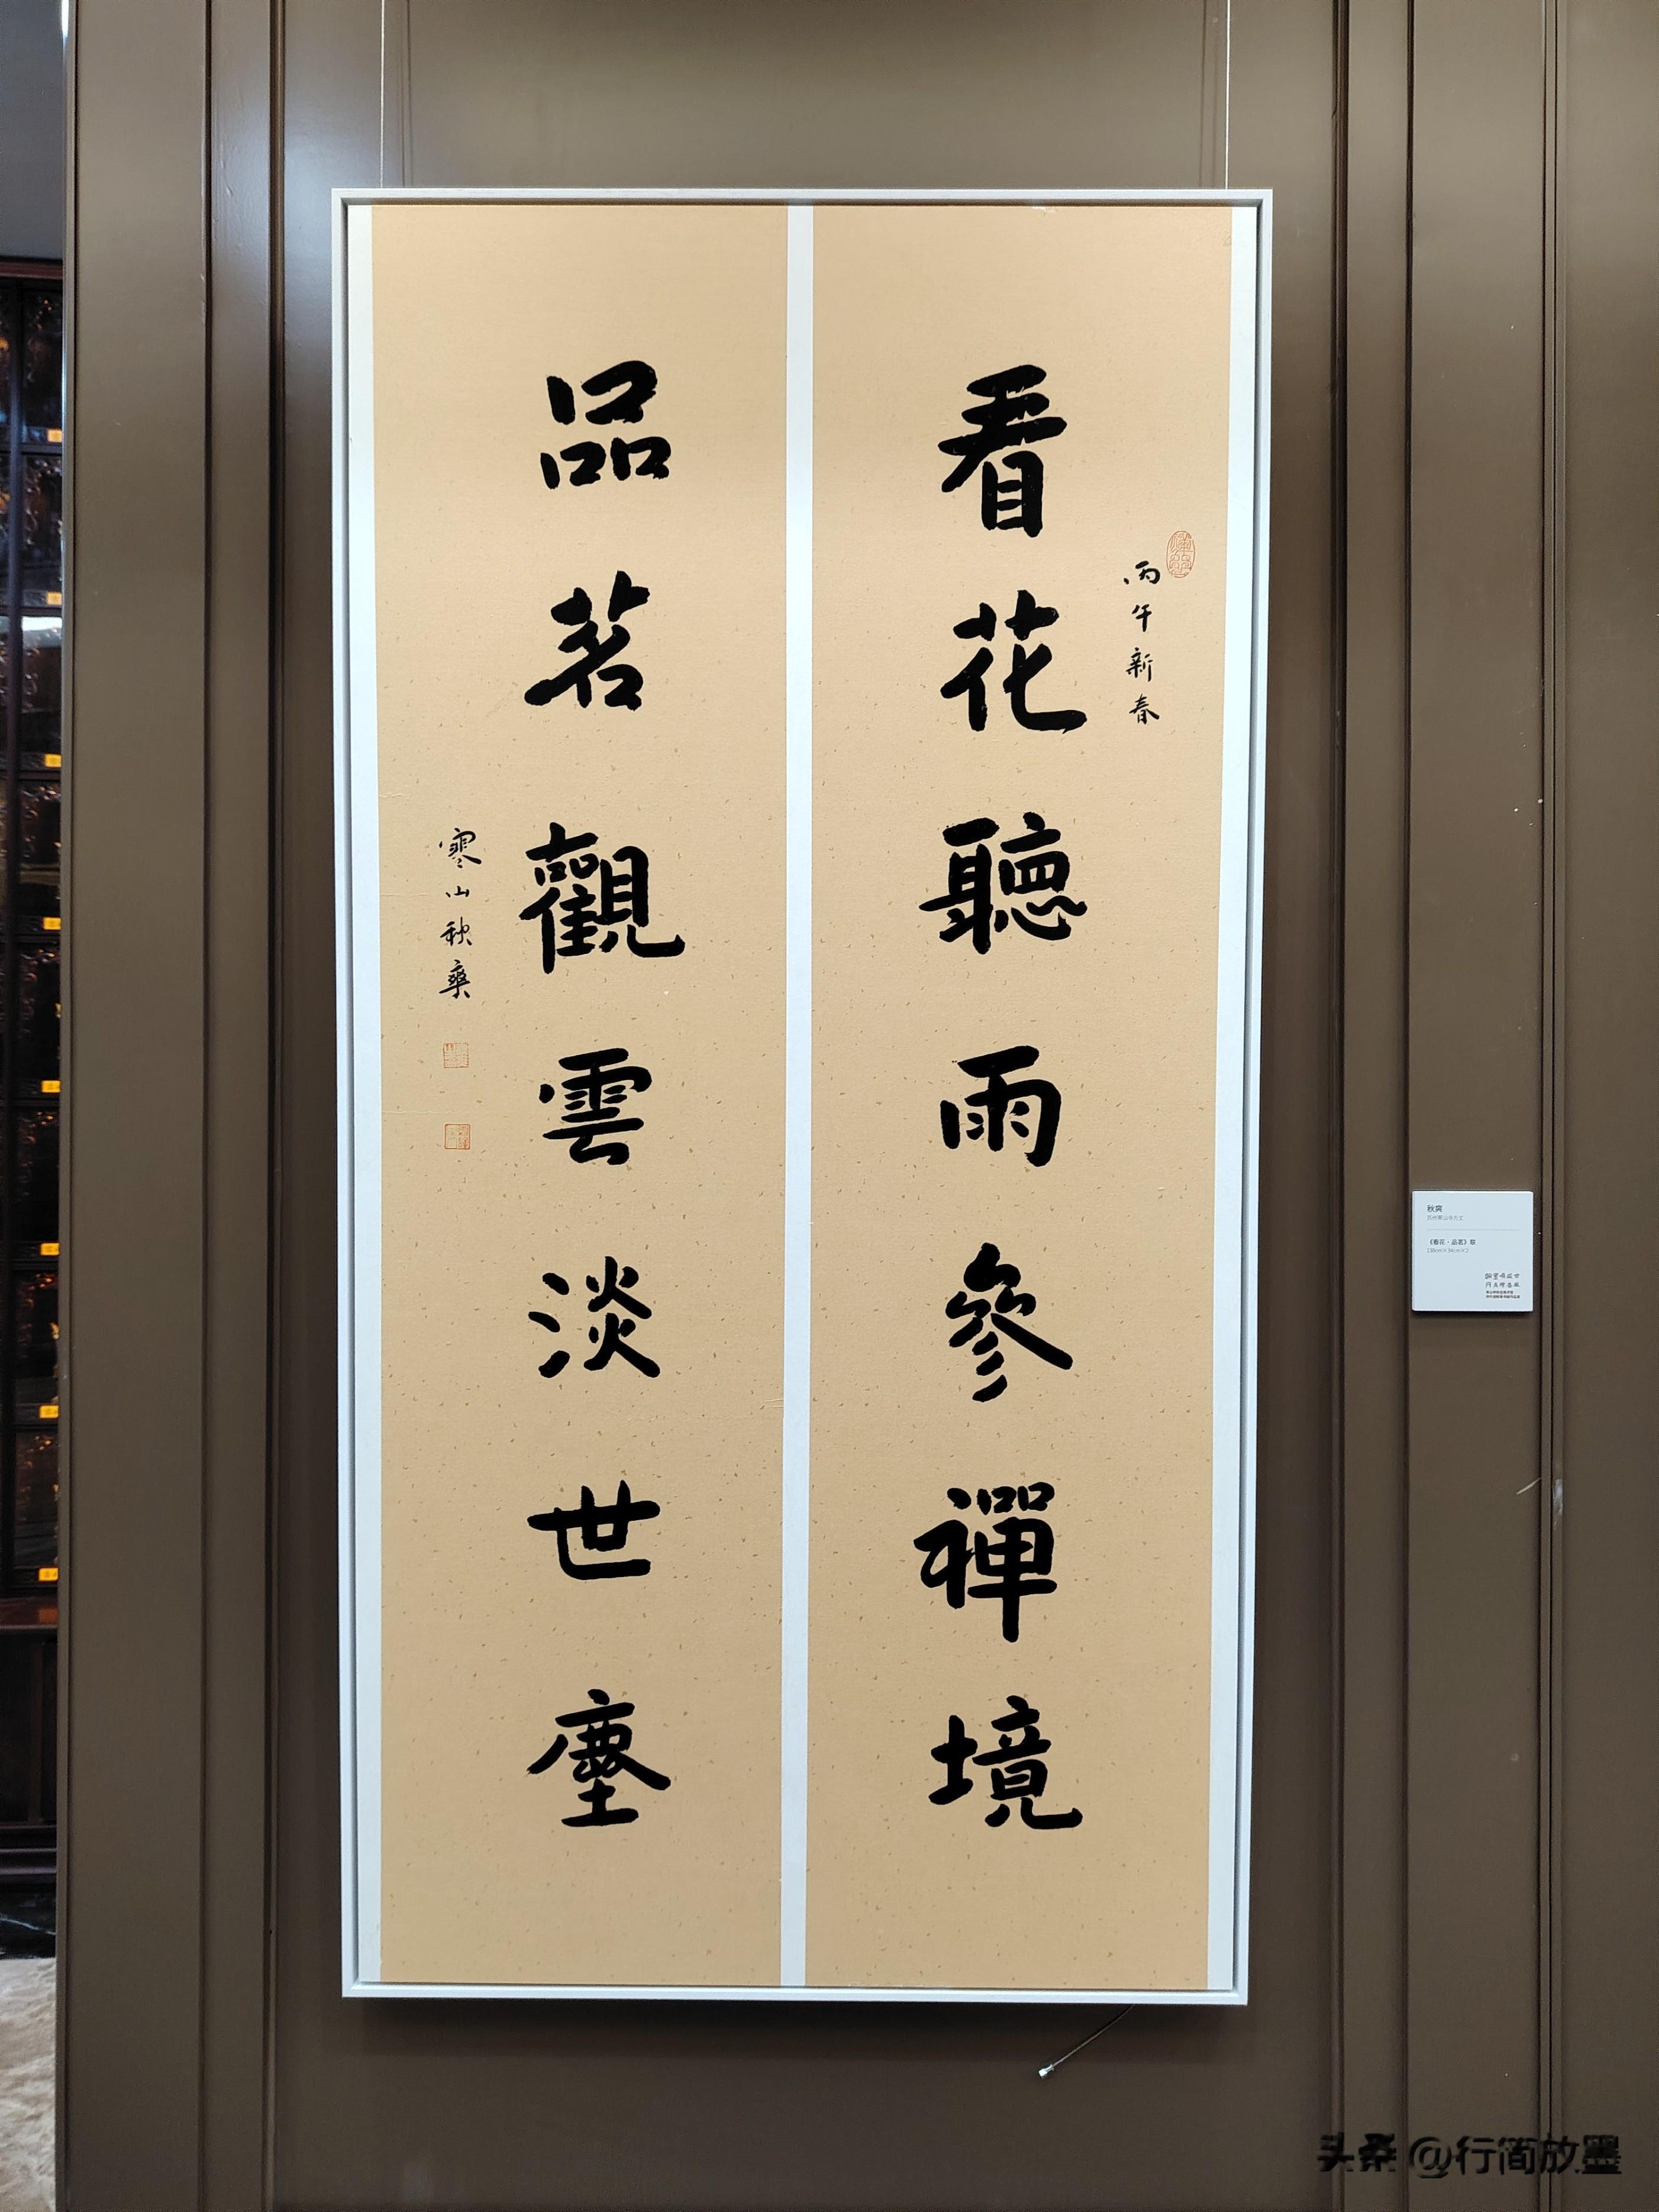 看花聽雨參禪境
丙午新春
品茗觀雲淡世塵
寒山秋爽
秋爽
苏州寒山寺方丈
《看花·品茗》联
138cm×34cm×2
头条 @行简放墨